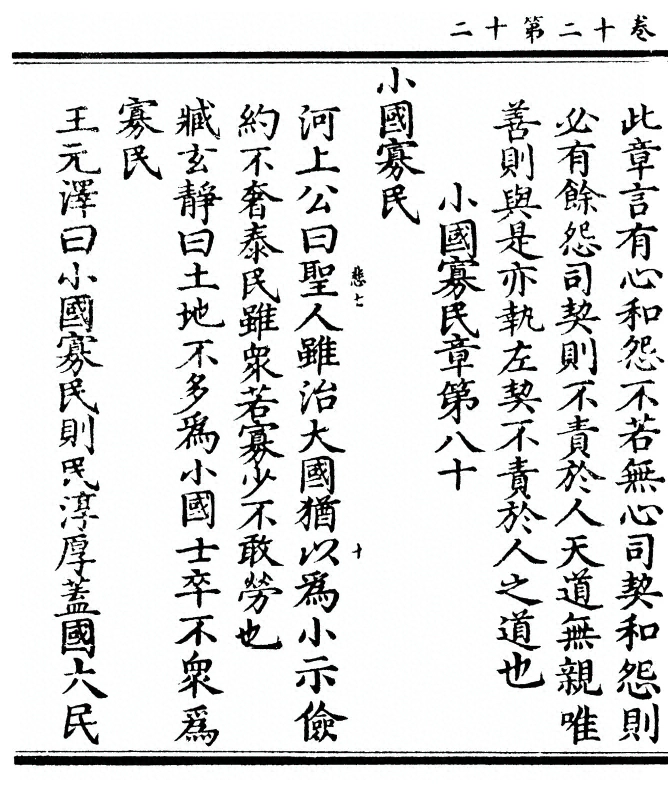 卷十二第十二
此章言有心和怨不若無心司契和怨則
必有餘怨司契則不責於人天道無親唯
善則與是亦執左契不責於人之道也
小國寡民章第八十
小國寡民
河上公曰聖人雖治大國猶以為小示儉
悲七
十
約不奢泰民雖眾若寡少不敢勞也
臧玄靜曰土地不多為小國士卒不眾為
寡民
王元澤曰小國寡民則民淳厚蓋國大民